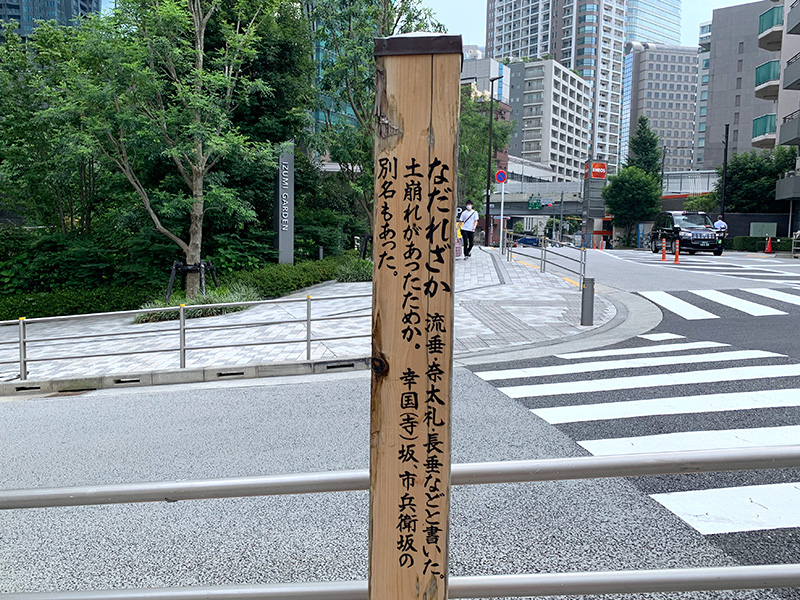 なだれざか 流垂・奈太礼・長垂などと書いた。
土崩れがあったためか。 幸国(寺)坂、市兵衛坂の
別名もあった。
IZUMI GARDEN
ENEOS